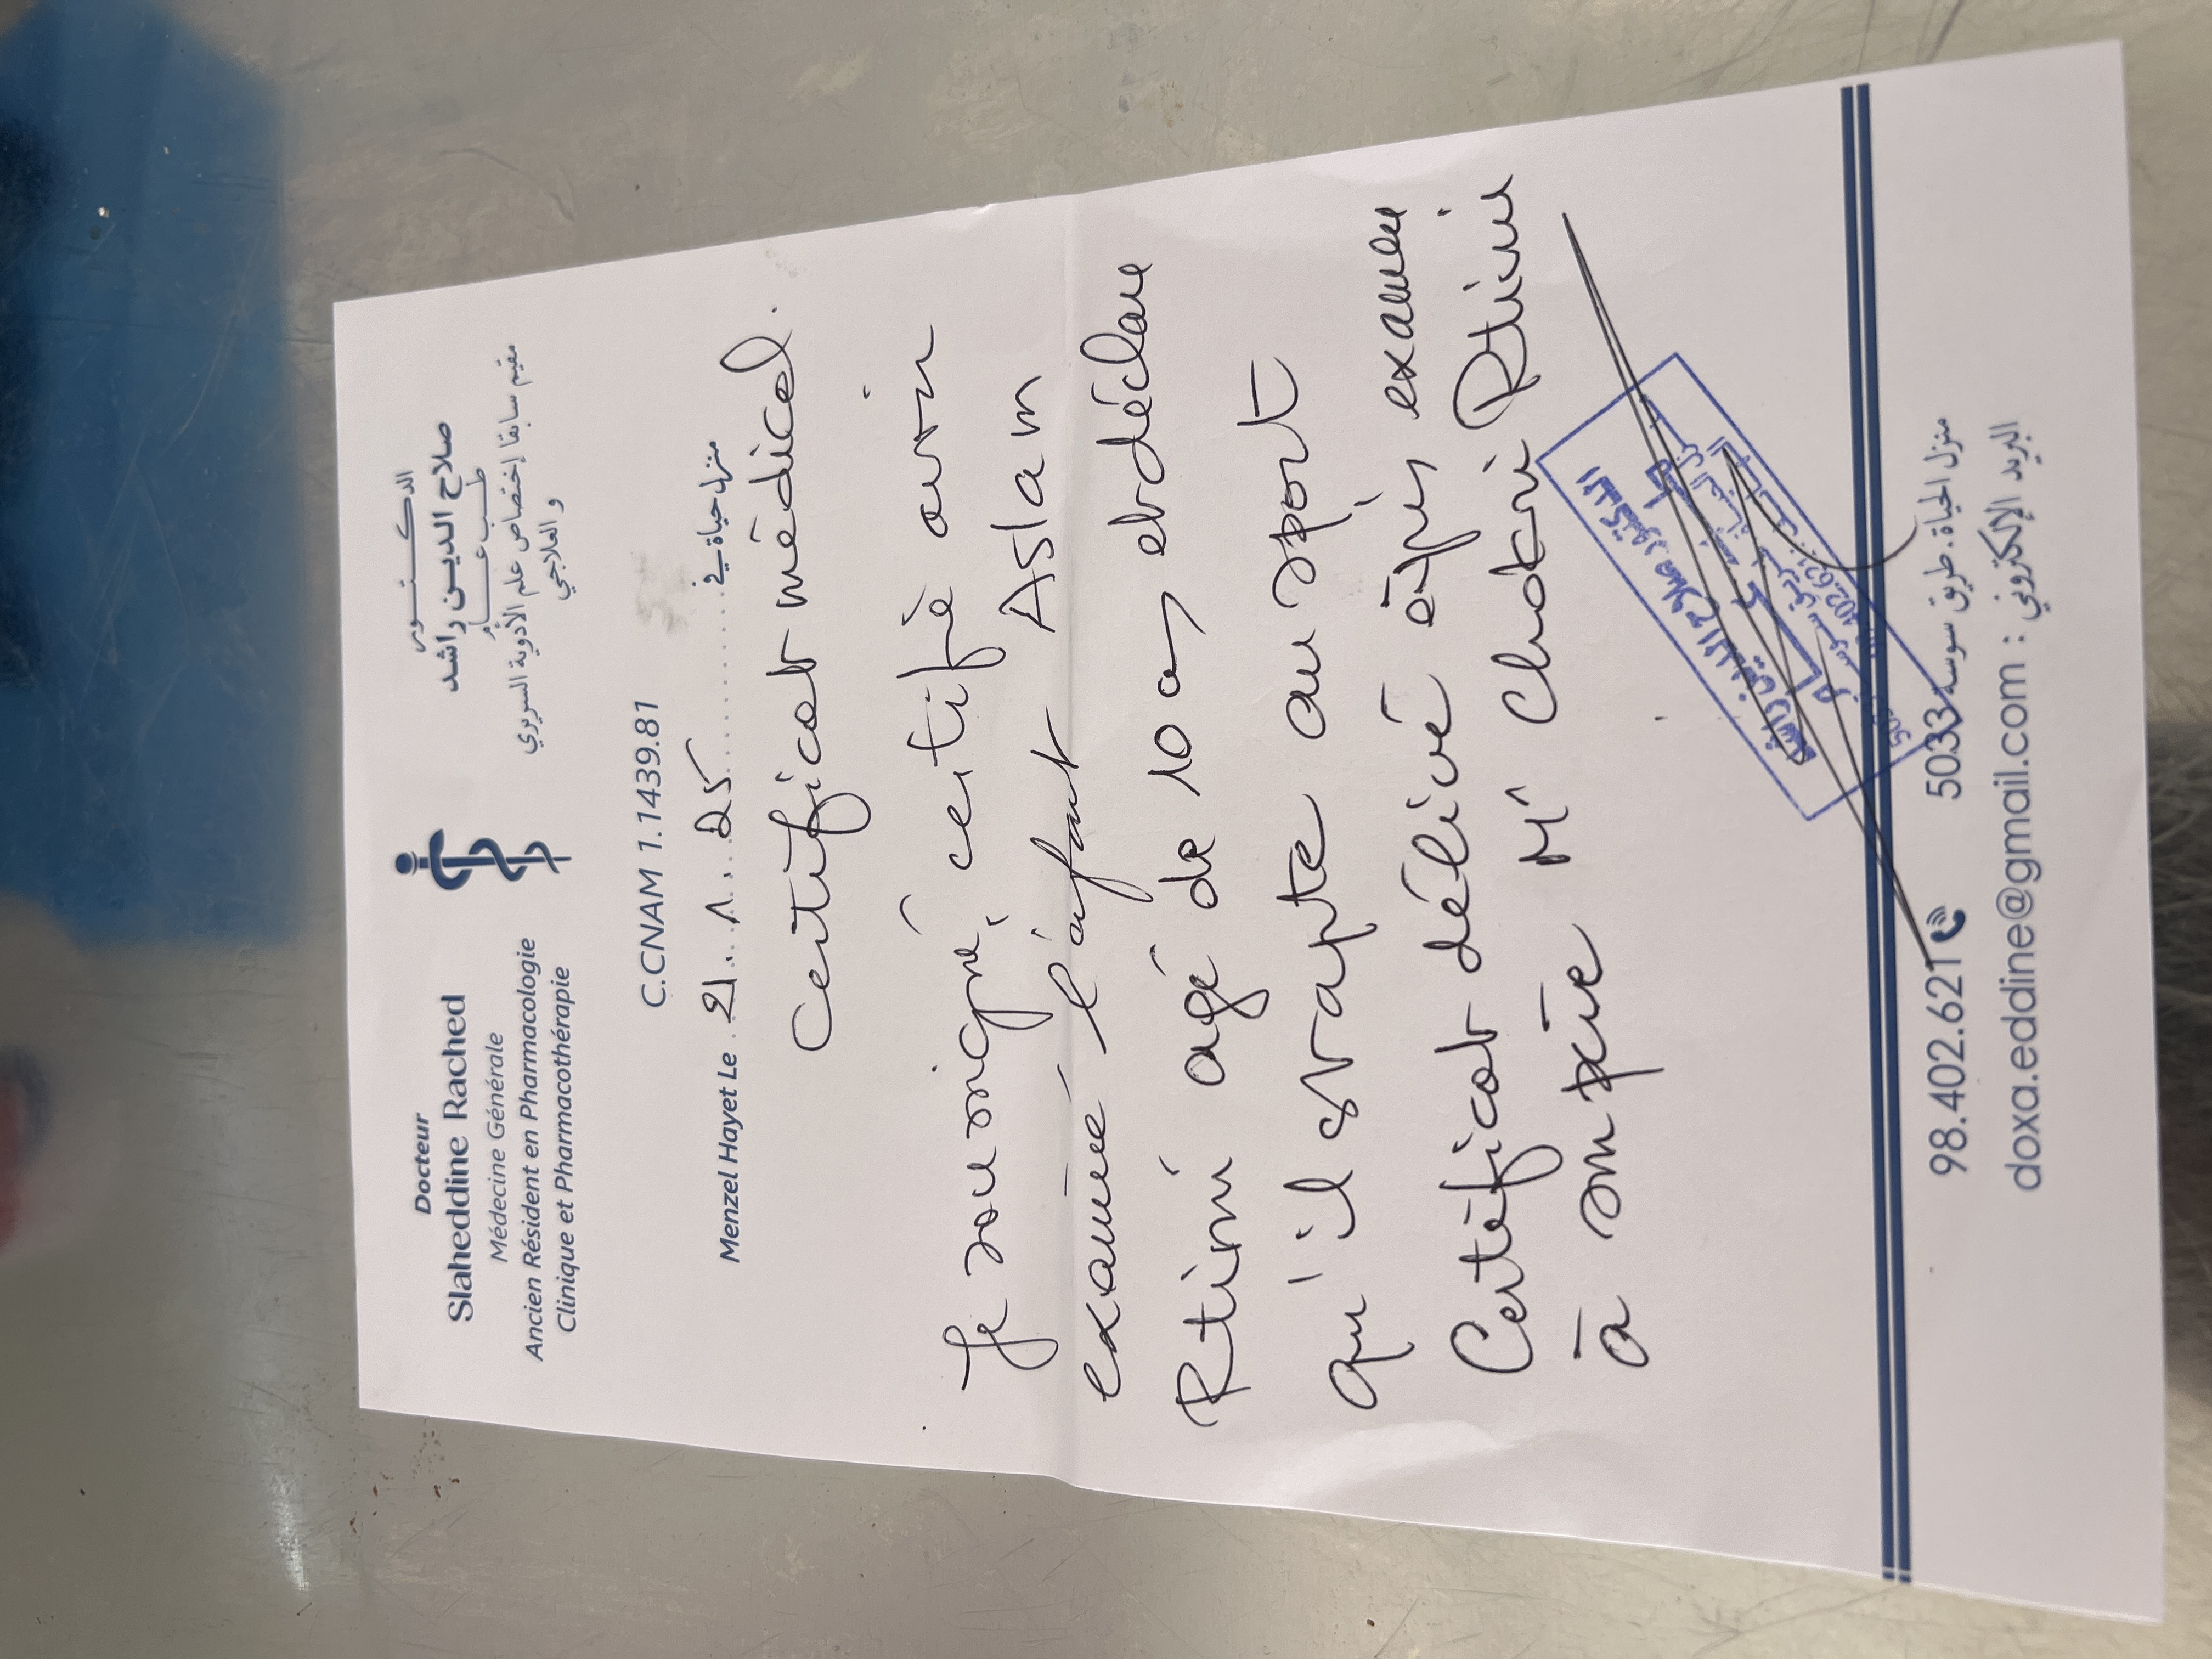 Docteur
Slaheddine Rached
Médecine Générale
Ancien Résident en Pharmacologie
Clinique et Pharmacothérapie
الدكتور
صلاح الدين راشد
طب عام
مقيم سابقا إختصاص علم الأدوية السريري
و العلاجي
C.CNAM 1.1439.81
Menzel Hayet Le 21.1.25 منزل حياة في
Certificat médical.
Je soussigné, certifie avoir
examiné l'enfant Aslam
Rtimi agé de 10 ans et déclare
qu'il est apte au sport
Certificat délivré après examen
à son père Mr Chokri Rtimi
الدكتور صلاح الدين راشد
98.402.621 منزل الحياة. طريق سوسة 5033
doxa.eddine@gmail.com : البريد الإلكتروني